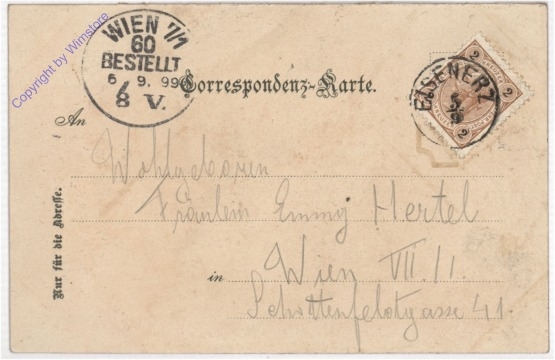 WIEN 7/1
60
BESTELLT
6. 9. 99
8 V.
Correspondenz-Karte.
2 2 2
EISENERZ
5
9
An
Wohlgeboren
Fräulein Emmy Hertel
in Wien VII./1.
Schottenfeldgasse 41
Nur für die Adresse.
Copyright by Wimstore